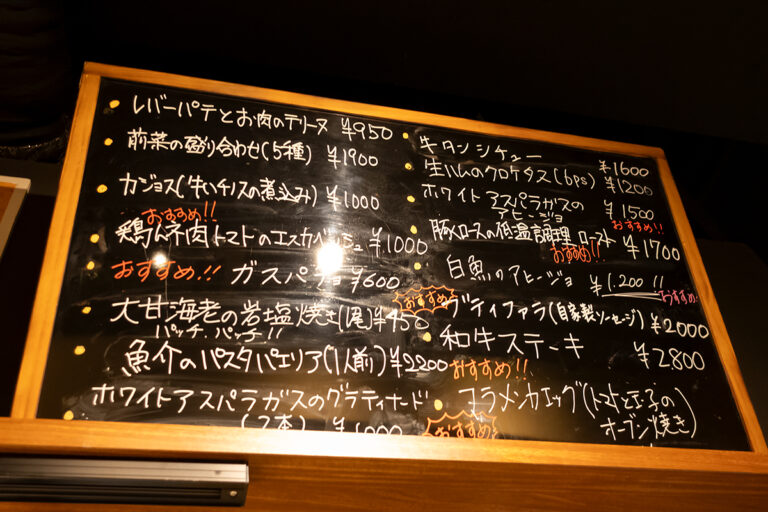 レバーパテとお肉のテリーヌ ¥950
前菜の盛り合わせ(5種) ¥1900
カジョス(牛ハチノスの煮込み) ¥1000
おすすめ!!
鶏ムネ肉トマトのエスカベッシュ ¥1000
おすすめ!! ガスパチョ ¥600
大甘海老の岩塩焼き(尾)¥450
パッチ、パッチ!!
魚介のパスタパエリア(1人前)¥2200
ホワイトアスパラガスのグラティナード
(2本) ¥1000
牛タンシチュー ¥1600
生ハムのクロケタス(6ps) ¥1200
ホワイトアスパラガスの
アヒージョ ¥1500
おすすめ!!
豚ロースの低温調理ロースト ¥1700
おすすめ!!
白魚のアヒージョ ¥1.200!!
おすすめ
おすすめ ブティファラ(自家製ソーセージ)¥2000
和牛ステーキ ¥2800
おすすめ!!
フラメンカエッグ(トマトと玉子の
オーブン焼き)
おすすめ!!